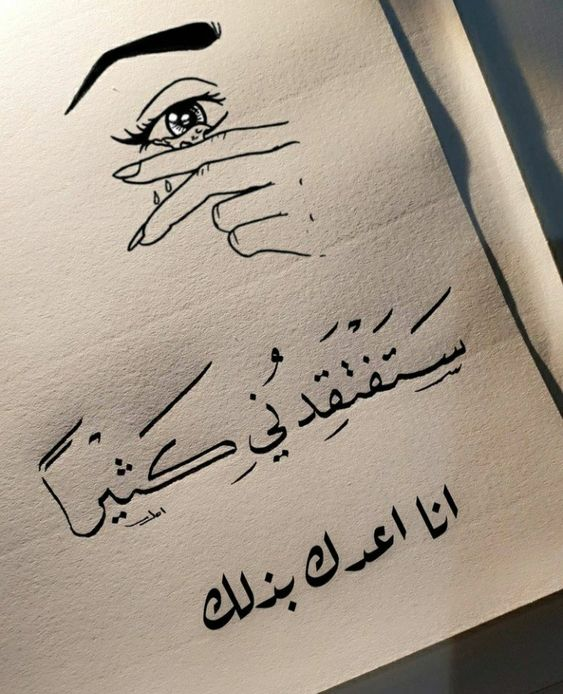 سَتَفْتَقِدُنِي كَثِيْراً
انا اعدك بذلك